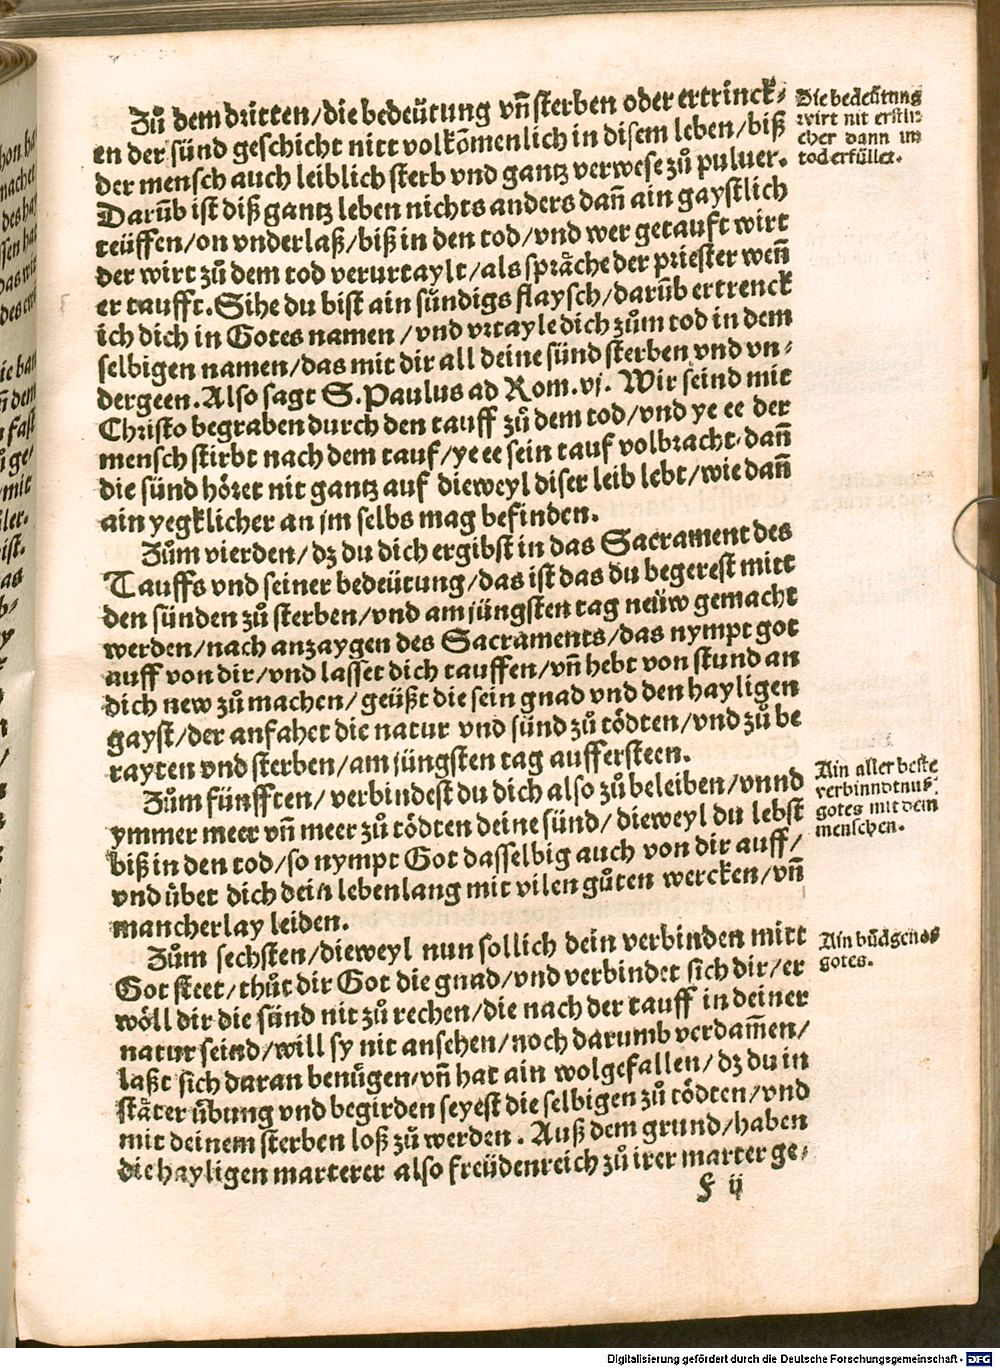 Zů dem dritten/die bedeütung vn̄ sterben oder ertrinck⸗
en der sünd geschicht nitt volkōmenlich in disem leben/biß
der mensch auch leiblich sterb vnd gantz verwese zů puluer.
Darūb ist diß gantz leben nichts anders dañ ain gaystlich
teüffen/on vnderlaß/biß in den tod/vnd wer getauft wirt
der wirt zů dem tod verurtaylt/als spräche der priester weñ
er taufft. Sihe du bist ain sündigs flaysch/darūb ertrenck
ich dich in Gotes namen/vnd vrtayle dich zům tod in dem
selbigen namen/das mit dir all deine sünd sterben vnd vn⸗
dergeen. Also sagt S. Paulus ad Rom. vj. Wir seind mit
Christo begraben durch den tauff zů dem tod/vnd ye ee der
mensch stirbt nach dem tauf/ye ee sein tauf volbracht. dañ
die sünd höret nit gantz auf dieweyl diser leib lebt/wie dañ
ain yegklicher an jm selbs mag befinden.
Zům vierden/dz du dich ergibst in das Sacrament des
Tauffs vnd seiner bedeütung/das ist das du begerest mitt
den sünden zů sterben/vnd am jüngsten tag neüw gemacht
werden/nach anzaygen des Sacraments/das nympt got
auff von dir/vnd lasset dich tauffen/vn̄ hebt von stund an
dich new zů machen/geüßt die sein gnad vnd den hayligen
gayst/der anfahet die natur vnd sünd zů tödten/vnd zů be
rayten vnd sterben/am jüngsten tag auffersteen.
Zům fünfften/verbindest du dich also zů beleiben/vnnd
ymmer meer vn̄ meer zů tödten deine sünd/dieweyl du lebst
biß in den tod/so nympt Got dasselbig auch von dir auff/
vnd übet dich dein lebenlang mit vilen gůten wercken/vn̄
mancherlay leiden.
Zům sechsten/dieweyl nun sollich dein verbinden mitt
Got steet/thůt dir Got die gnad/vnd verbindet sich dir/er
wöll dir die sünd nit zů rechen/die nach der tauff in deiner
natur seind/will sy nit ansehen/noch darumb verdam̄en/
laßt sich daran benügen/vn̄ hat ain wolgefallen/dz du in
stäter übung vnd begirden seyest die selbigen zů tödten/vnd
mit deinem sterben loß zů werden. Auß dem grund/haben
die hayligen marterer also freüdenreich zů irer marter ge⸗
F ij
Die bedeütung
wirt nit erstli⸗
cher dann im
tod erfüllet.
Ain aller beste
verbinndtnus
gotes mit dem
menschen.
gotes.
Digitalisierung gefördert durch die Deutsche Forschungsgemeinschaft - DFG